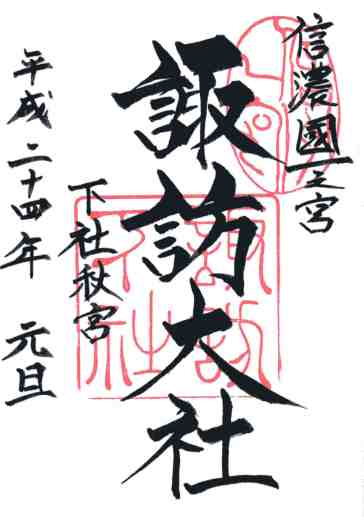 信濃國一之宮
諏訪大社
下社秋宮
平成二十四年 元旦